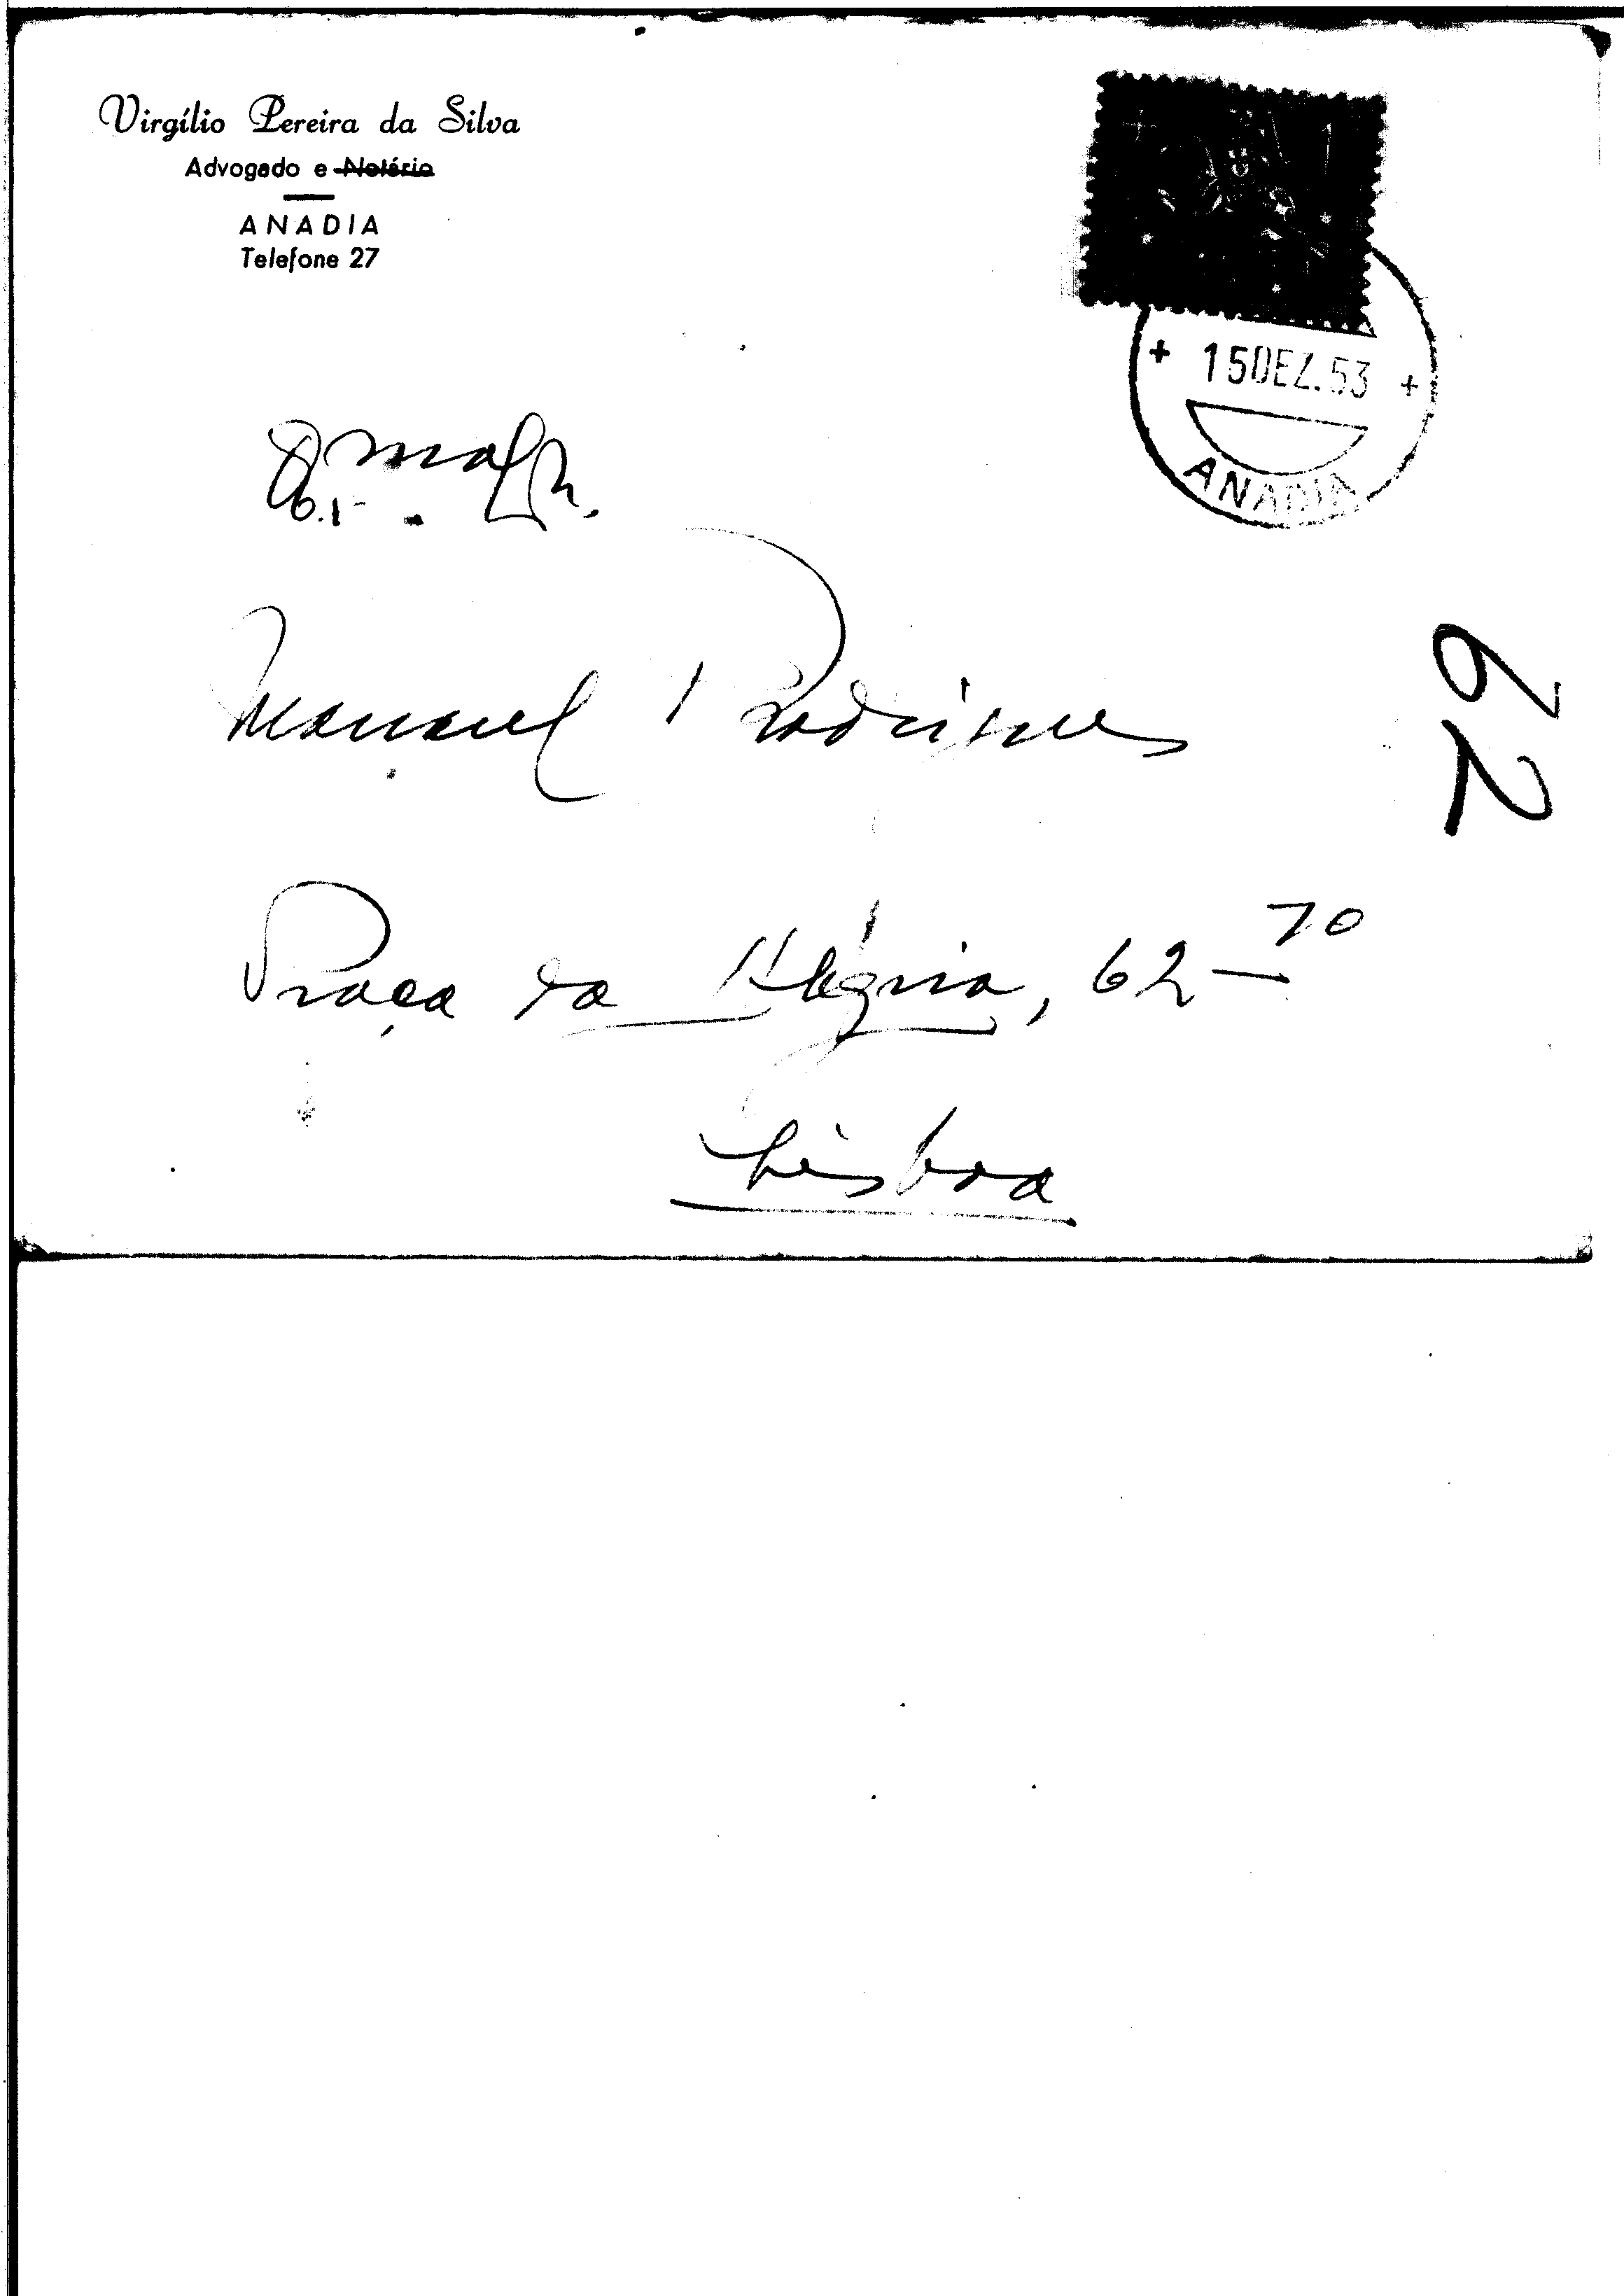 Virgílio Pereira da Silva
Advogado e Notário
ANADIA
Telefone 27
+ 15 DEZ. 53 +
ANADIA
Manuel Rodrigues
62
Praça da Alegria, 62 – 7º
Lisboa